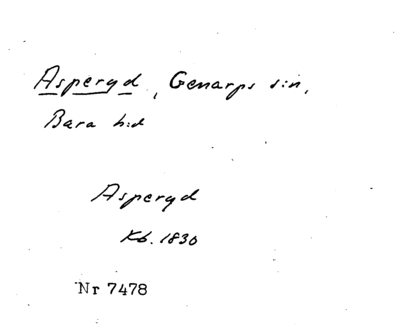 Asperyd, Genarps s:n,
Bara h:d
Asperyd
Kb. 1830
Nr 7478